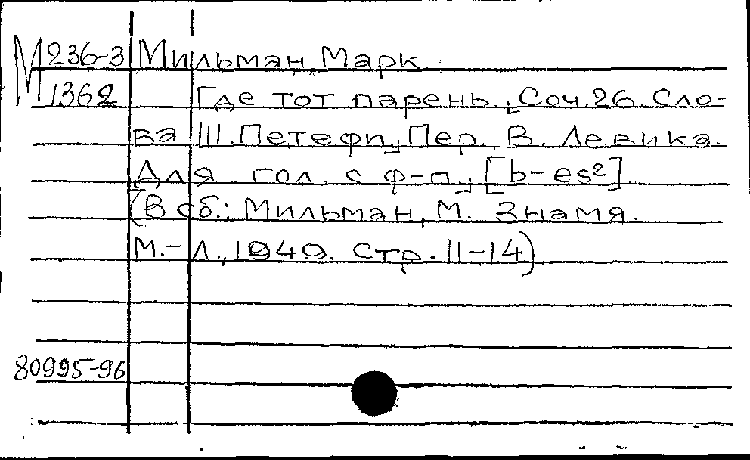 М 236-3 Мильман, Марк
1362 Где тот парень. Соч. 26. Сло-
ва Ш. Петефи, Пер. В. Левика.
Для гол. с ф-п., [b-es²]
(В сб.: Мильман, М. Знамя.
М.-Л., 1940. Стр. 11-14)
80995-96